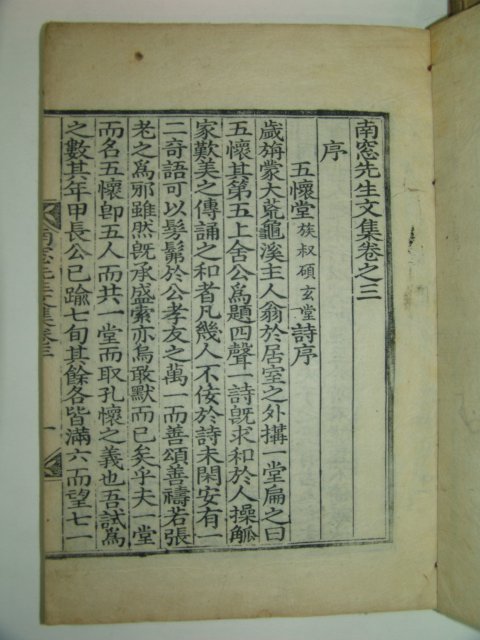 南窓先生文集卷之三
序
五懷堂族叔碩玄堂詩序
歲旃蒙大荒龜溪主人翁於居室之外搆一堂扁之曰
五懷其第五上舍公爲題四聲一詩旣求和於人操觚
家歎美之傳誦之和者凡幾人不侫於詩未閑安有一
二奇語可以髣髴於公孝友之萬一而善頌善禱若張
老之爲邪雖然旣承盛索亦烏敢默而已矣乎夫一堂
而名五懷卽五人而共一堂而取孔懷之義也吾試爲
之數其年甲長公已踰七旬其餘各皆滿六而望七一
南窓先生文集卷三
一